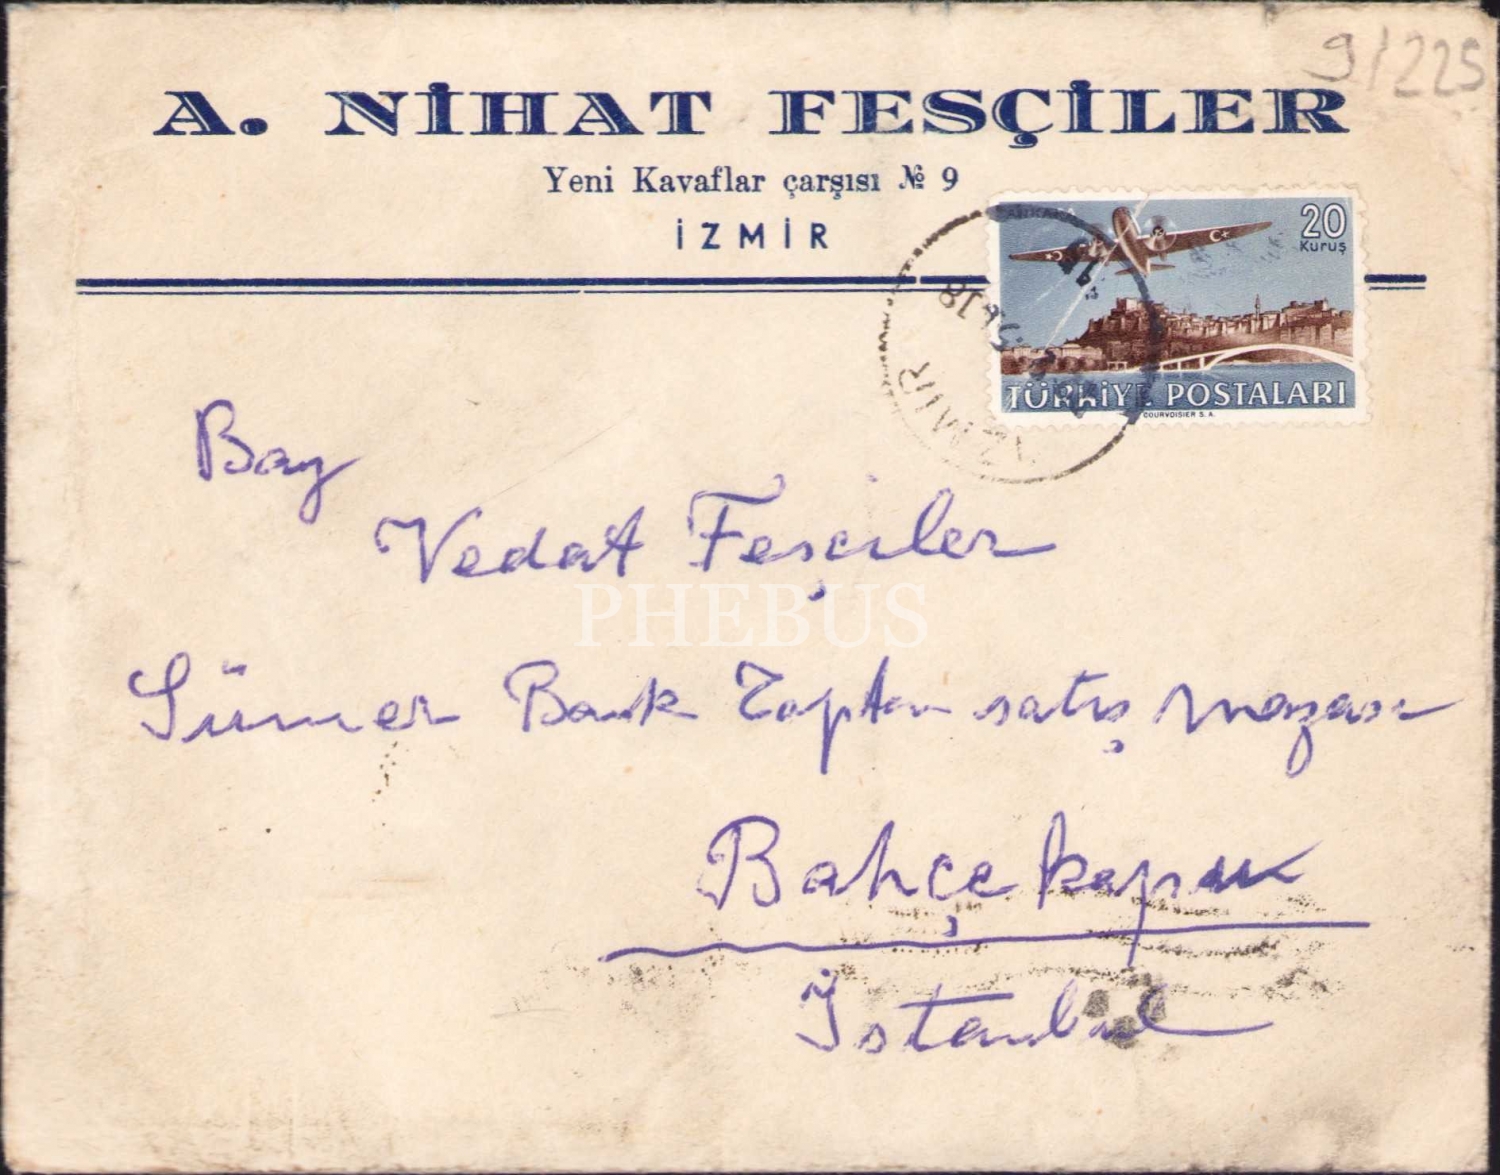 9/225
A. NİHAT FESÇİLER
Yeni Kavaflar çarşısı № 9
İZMİR
ANKARA
20
Kuruş
TÜRKİYE POSTALARI
COURVOISIER S. A.
İZMİR
Bay
Vedat Fesçiler
PHEBUS
Sümer Bank Toptan satış mağazası
Bahçekapı
İstanbul